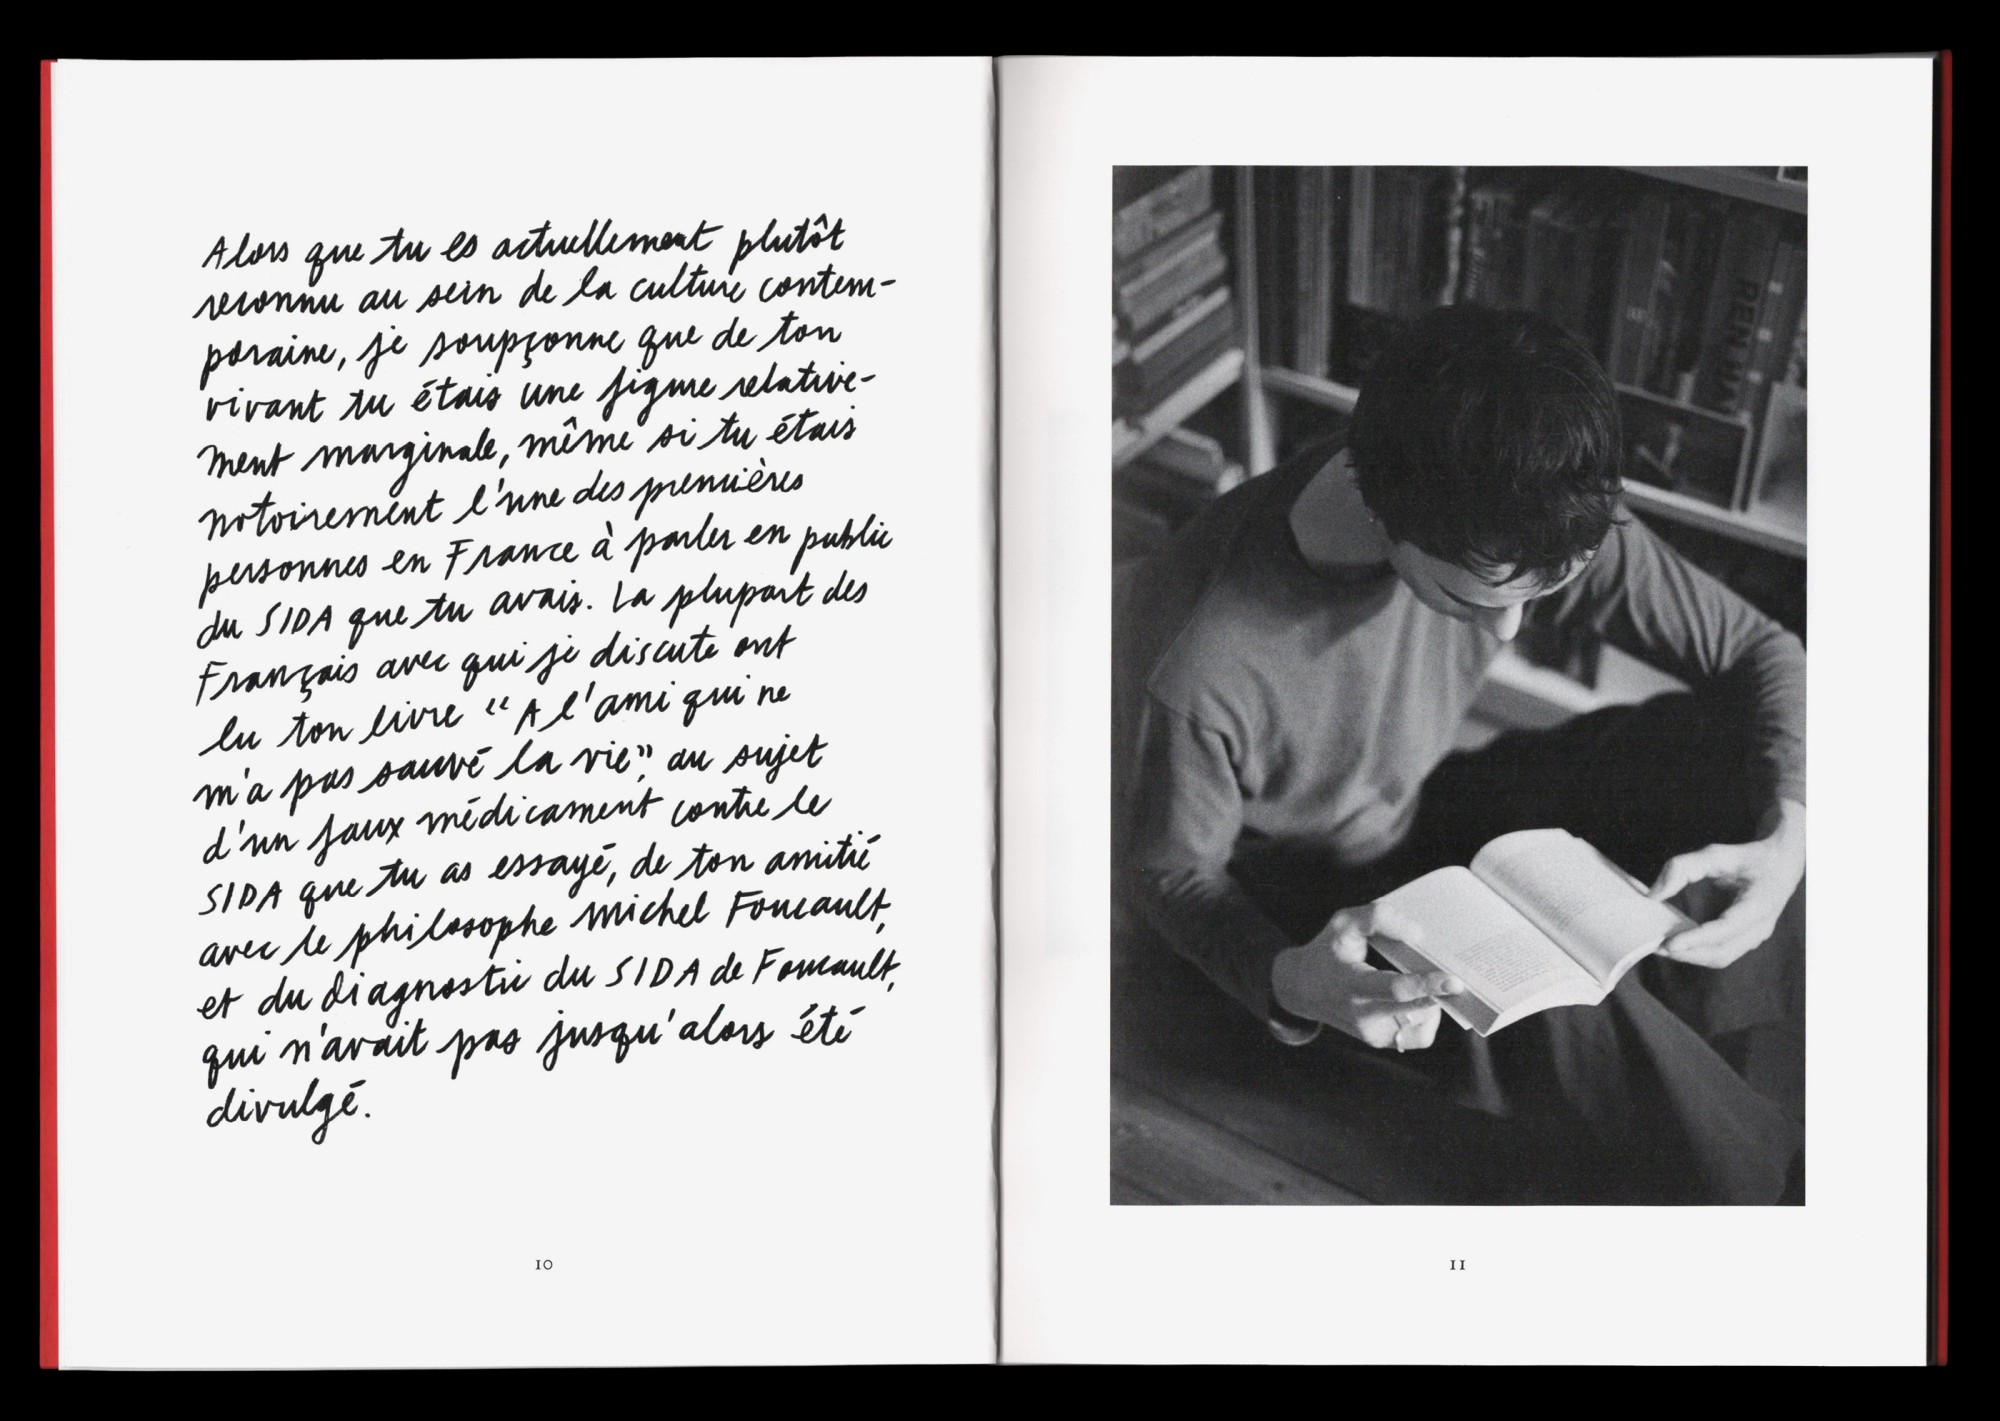 Alors que tu es actuellement plutôt
reconnu au sein de la culture contem-
poraine, je soupçonne que de ton
vivant tu étais une figure relative-
ment marginale, même si tu étais
notoirement l'une des premières
personnes en France à parler en public
du SIDA que tu avais. La plupart des
Français avec qui je discute ont
lu ton livre "A l'ami qui ne
m'a pas sauvé la vie", au sujet
d'un faux médicament contre le
SIDA que tu as essayé, de ton amitié
avec le philosophe Michel Foucault,
et du diagnostic du SIDA de Foucault,
qui n'avait pas jusqu'alors été
divulgé.
10
11